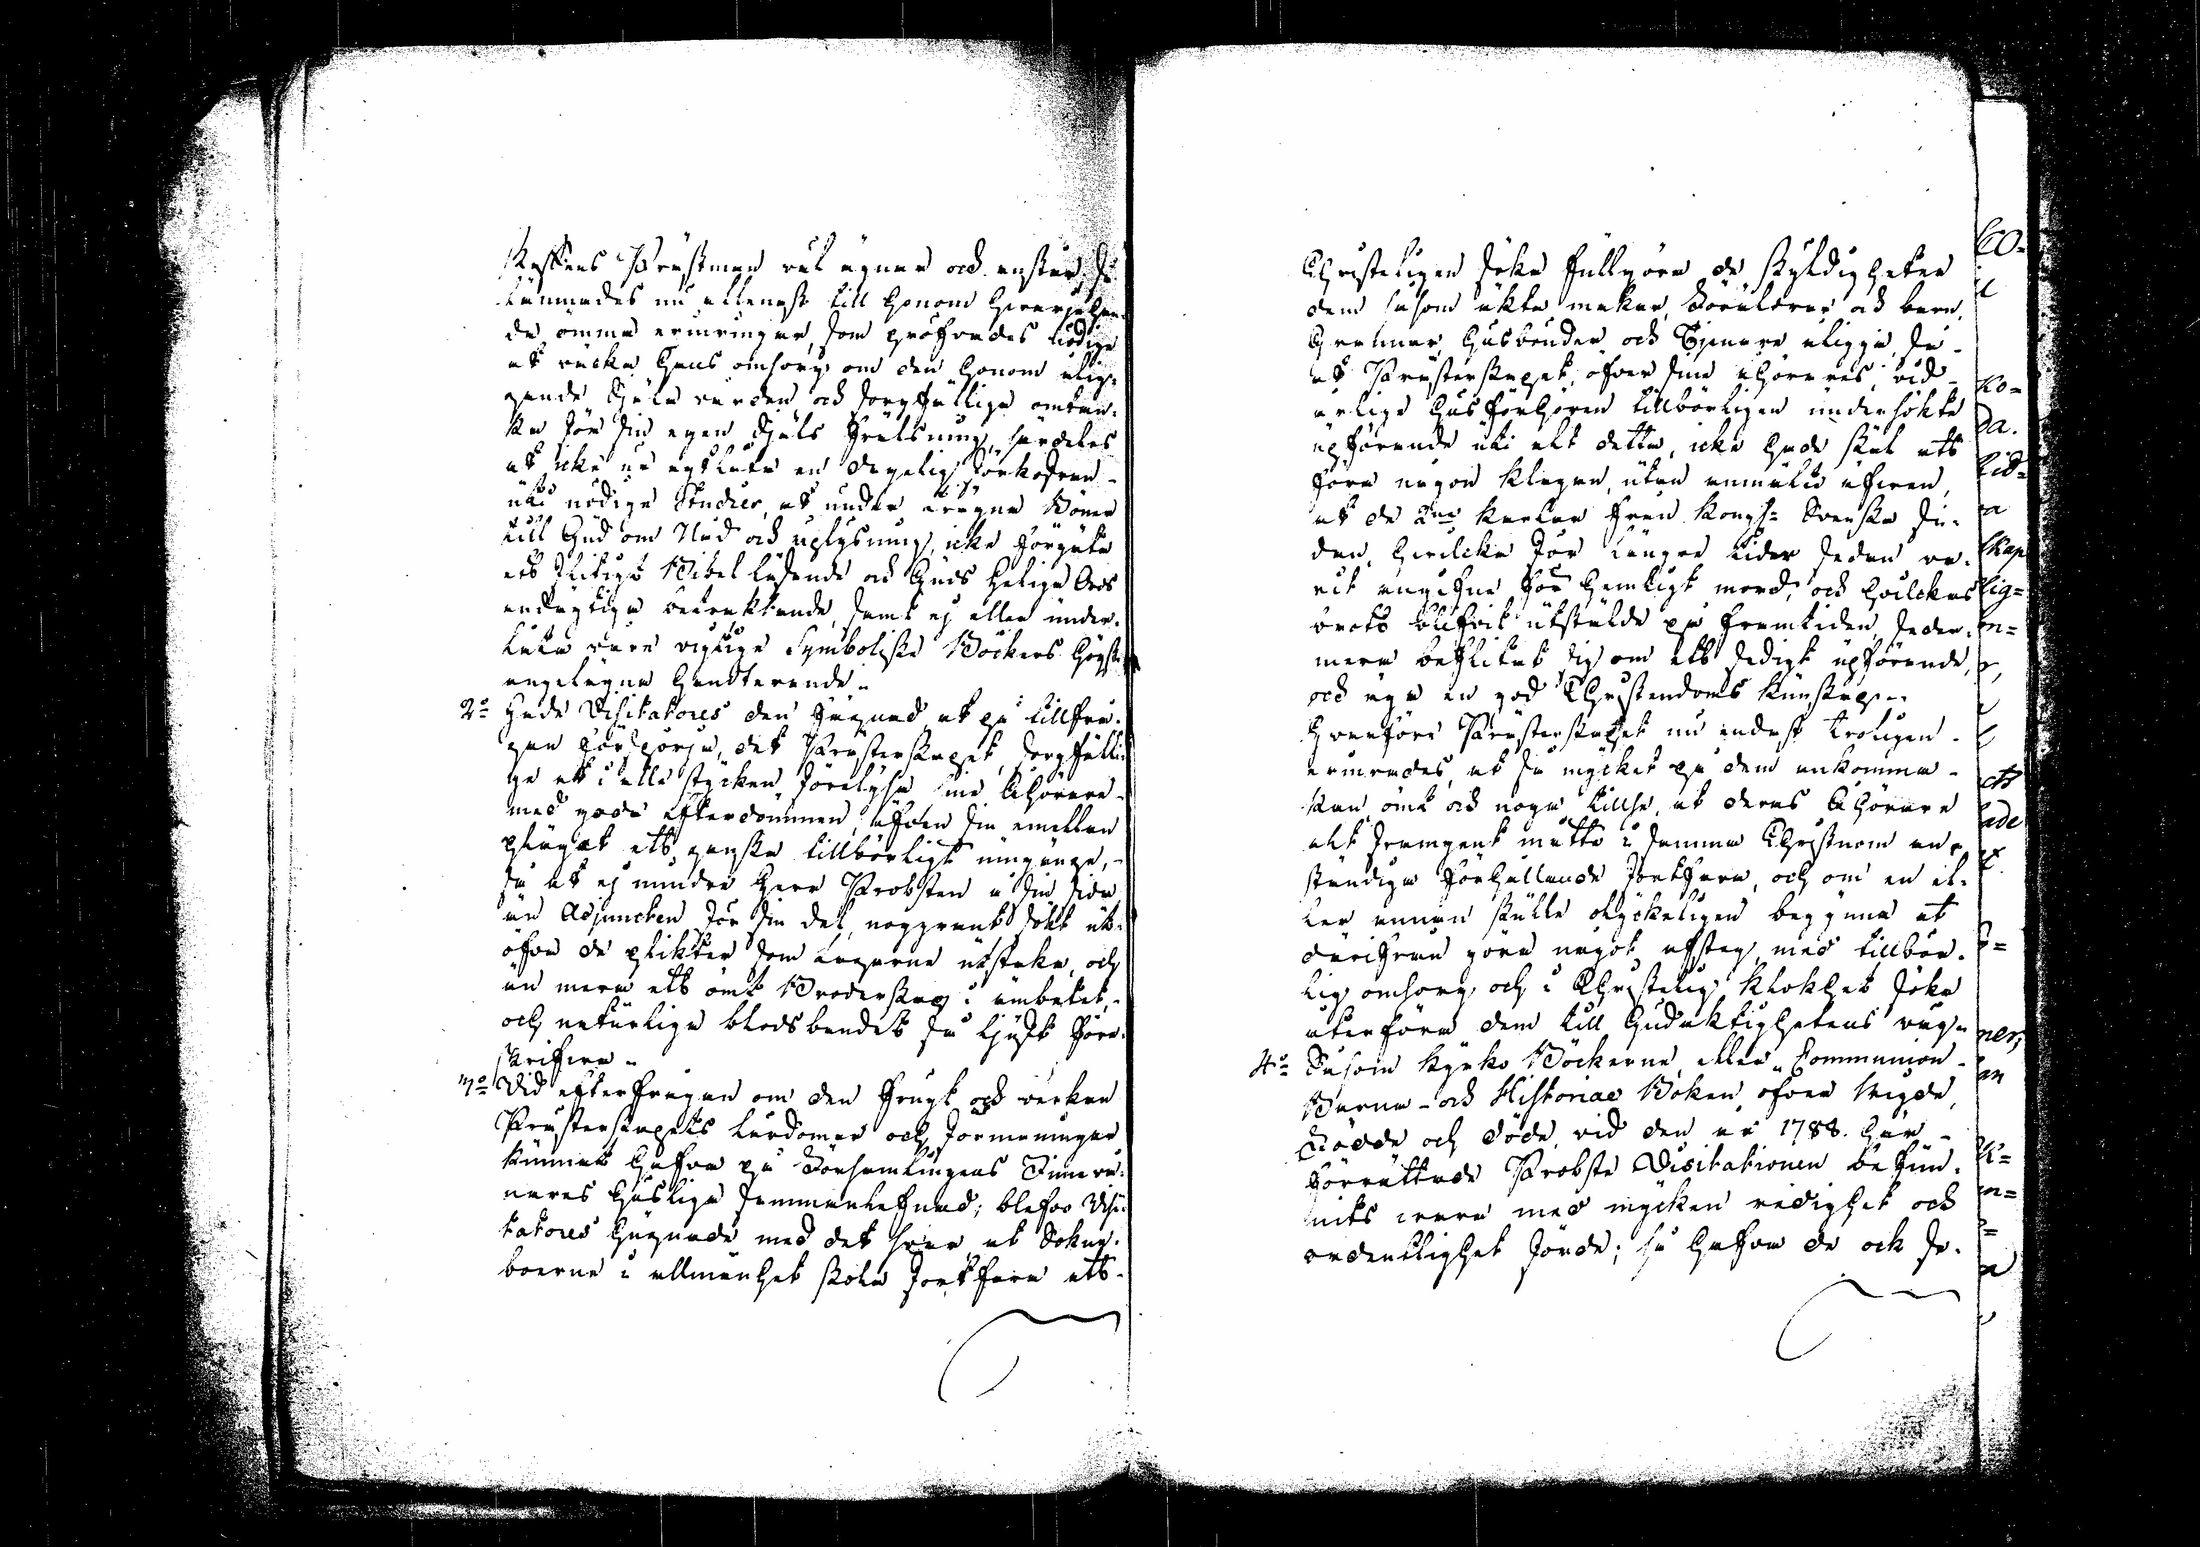 skaffens Prästman väl ägnar och anstår, så
lämnades nu allenast till honom hvarjehan-
da ömma erinringar, som pröfvades tiödige
at väcka hans omsorg om den honom ålig-
gande Själa vården och sorgfällige omtan-
ka för sin egen Själs frälsning, särdeles
at icke underlåta en dagelig förkofran
uti nödiga Studier, at under trägna Böner
till Gud om Nåd och uplysning, icke förgäta
ett flitigt Bibel läsande och Guds Helige Ords
andägtiga betraktande, samt ej eller under-
låta våra vigtige Symboliska Böckers högst
angelägna handterande.
2:o Hade Visitatores den fägnad, at på tillfrå-
gan förspörja, det Prästerskapet, sorgfälli-
ge at i alla stycken förelysa sine Åhörare
med goda efterdömmen, äfven sin emellan
plägat ett ganska tillbörligt umgänge,
så at ej mindre Herr Probsten å sin sida
än Adjuncten för sin del, noggrant sökt ut-
öfva de plikter som Lagarne utstaka, och
än mera ett ömt Broderskap i ämbetet,
och naturliga blodsbandet så ljuft före-
skrifva.
3:o Vid efterfrågan om den frugt och verkan
Prästerskapets lärdomar och förmaningar
kunnat hafva på Församlingens Innevå-
nares husliga sammanlefnad; blefvo Visi-
tatores hugnade med det svar at Sokne-
boerne i allmänhet skola fortfara at
Christeligen söka fullgöra de skyldigheter
dem såsom äkta makar, Föräldrar och barn,
Grannar, Husbönder och Tjenare åligga, så
at Prästerskapet, öfver sine åhörares vid
årlige Husförhören tillbörligen undersökte
upförande uti alt detta, icke hade skäl at
föra någon klagan, utan anmälte äfven,
at de 2:ne Karlar från Kongs- Svenska Si-
dan, hvilcka för längre tider sedan va-
rit angifne för hemligt mord, och hvilckas
brott blifvit utstälde på framtiden, seder-
mera beflitat sig om ett sedigt upförande,
och äga en god Christendoms kunskap.
Hvarföre Prästerskapet nu endast troligen
erinrades, at så mycket på dem ankomma
kan, ömt och noga tillse, at deras Åhörare
alt framgent måtte i samma Christnom an-
ständiga förhållande fortfara, och om en el-
ler annan skulle olyckeligen begynna at
därifrån göra något afsteg, med tillbör-
lig omsorg och i Christelig klokhet söka
återföra dem till Gudaktighetens väg.
4:o Såsom Kyrko Böckerne, eller Communion
Barna- och Historiae Boken öfver Vigde,
Födde och Döde, vid den år 1788. här
förrättade Probste Visitationen befun-
nits vara med mycken redighet och
ordentlighet förde; så hafva de ock se-